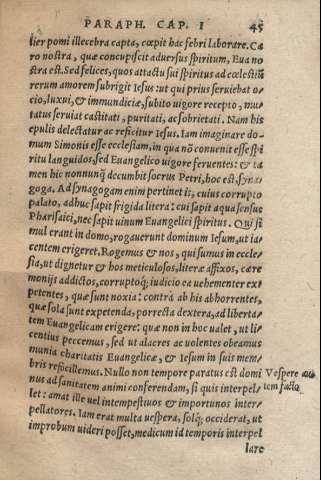 PARAPH. CAP. I 45
lier pomi illecebra capta, cœpit hac febri laborare. Ca
ro nostra, quæ concupiscit aduersus spiritum, Eua no
stra est. Sed felices, quos attactu sui spiritus ad cœlestiũ
rerum amorem subrigit Iesus: ut qui prius seruiebat o-
cio, luxui, & immundiciæ, subito uigore recepto, mu-
tatus seruiat castitati, puritati, ac sobrietati. Nam his
epulis delectatur ac reficitur Iesus. Iam imaginare do-
mum Simonis esse ecclesiam, in qua nõ conuenit esse spi
ritu languidos, sed Euangelico uigore feruentes: & ta
men hic nonnunq̃ decumbit socrus Petri, hoc est, Syna
goga. Ad synagogam enim pertinet is, cuius corrupto
palato, adhuc sapit frigida litera: cui sapit aqua sensus
Pharisaici, nec sapit uinum Euangelici spiritus. Qui si
mul erant in domo, rogauerunt dominum Iesum, ut ia
centem erigeret. Rogemus & nos, qui sumus in eccle-
sia, ut dignetur & hos meticulosos, literæ affixos, cære
monijs addictos, corruptoq́; iudicio ea uehementer ex
petentes, quæ sunt noxia: contrà ab his abhorrentes,
quæ sola sunt expetenda, porrecta dextera, ad liberta-
tem Euangelicam erigere: quæ non in hoc ualet, ut li-
centius peccemus, sed ut alacres ac uolentes obeamus
munia charitatis Euangelicæ, & Iesum in suis mem-
bris refocillemus. Nullo non tempore paratus est domi
nus ad sanitatem animi conferendam, si quis interpel-
let: amat ille uel intempestiuos & importunos inter-
pellatores. Iam erat multa uespera, solq́; occiderat, ut
improbum uideri posset, medicum id temporis interpel
lare
Vespere
tem facto